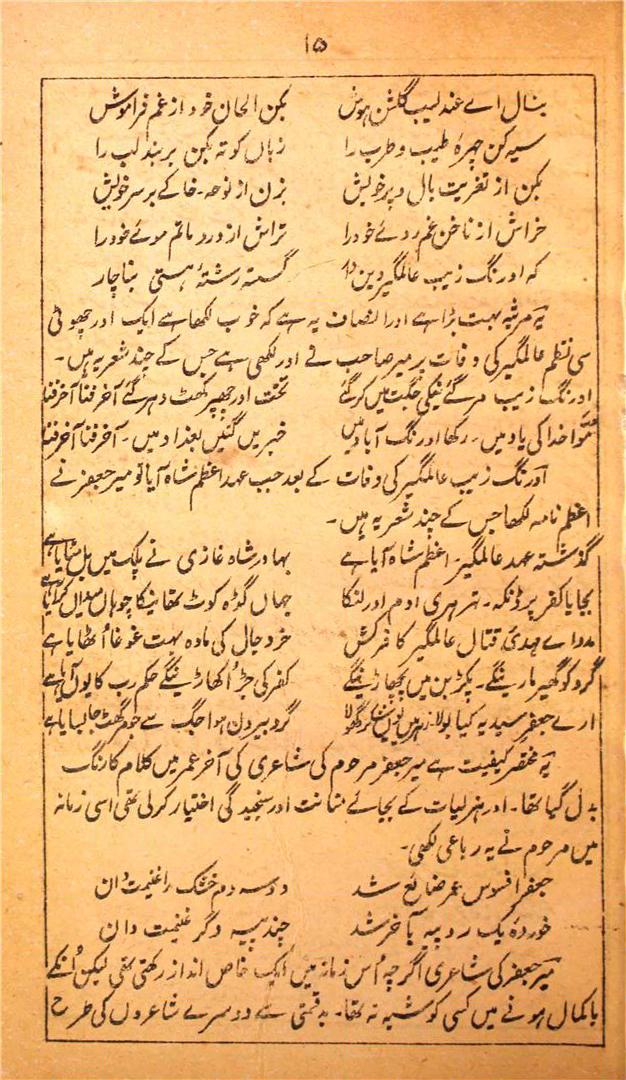 ۱۵
بنال اے عندلیب گلشن ہوش بکن الحان خود از غم فراموش
سیہ کن چہرۂ طیب و طرب را زباں کوتہ بکن بربند لب را
بکن از تعزیت بال و پر خویش بزن از نوحہ۔ خاکے بر سر خویش
خراش از ناخن غم روئے خود را تراش از درد ماتم موئے خود را
کہ اورنگ زیب عالمگیر دیں گسستہ رشتۂ ہستی بناچار
یہ مرثیہ بہت بڑا ہے اور انصاف یہ ہے کہ خوب لکھا ہے ایک اور چھوٹی
سی نظم عالمگیر کی وفات پر میر صاحب نے اور لکھی ہے جس کے چند شعر یہ ہیں۔
اورنگ زیب مر گئے نیکی جگت میں کر گئے تخت اور چھپر کھٹ دھر گئے آخر فنا آخر فنا
مُوا خدا کی یاد میں۔ رکھا اورنگ آباد میں خبریں گئیں بغداد میں۔ آخر فنا آخر فنا
اورنگ زیب عالمگیر کی وفات کے بعد جب عہد اعظم شاہ آیا تو میر جعفر نے
اعظم نامہ لکھا جس کے چند شعر یہ ہیں۔
گذشتہ عہد عالمگیر۔ اعظم شاہ آیا ہے بہادر شاہ غازی نے پلک میں
بجایا کفر پر ڈنکہ۔ اودہم اور لنکا جہاں گڈہ کوٹ تھا
مددا ے مہدئ قتال عالمگیر کافرکش خر دجال کی مادہ بہت غوغا اُٹھایا ہے
گرد کو گھیر مارینگے۔ پکڑ بن میں پچھاڑینگے کفر کی جڑ اُکھاڑینگے حکم رب کا یوں آیا ہے
ارے جعفر سید یہ کیا بولا گرد بیردن ہوا جگ سے
یہ مختصر کیفیت ہے میر جعفر مرحوم کی شاعری کی آخر عمر میں کلام کا رنگ
بدل گیا تھا۔ اور ہزلیات کے بجائے متانت اور سنجیدگی اختیار کر لی تھی اسی زمانہ
میں مرحوم نے یہ رباعی لکھی۔
جعفر افسوس عمر ضائع شد دو سہ دم خشک را غنیمت دان
خوردۂ یک روپیہ بآخر شد چند پیسہ دگر غنیمت دان
میر جعفر کی شاعری اگرچہ اُس زمانہ میں ایک خاص انداز رکھتی تھی لیکن اُنکے
باکمال ہونے میں کسی کو شبہ نہ تھا۔ بدقسمتی سے دوسرے شاعروں کی طرح